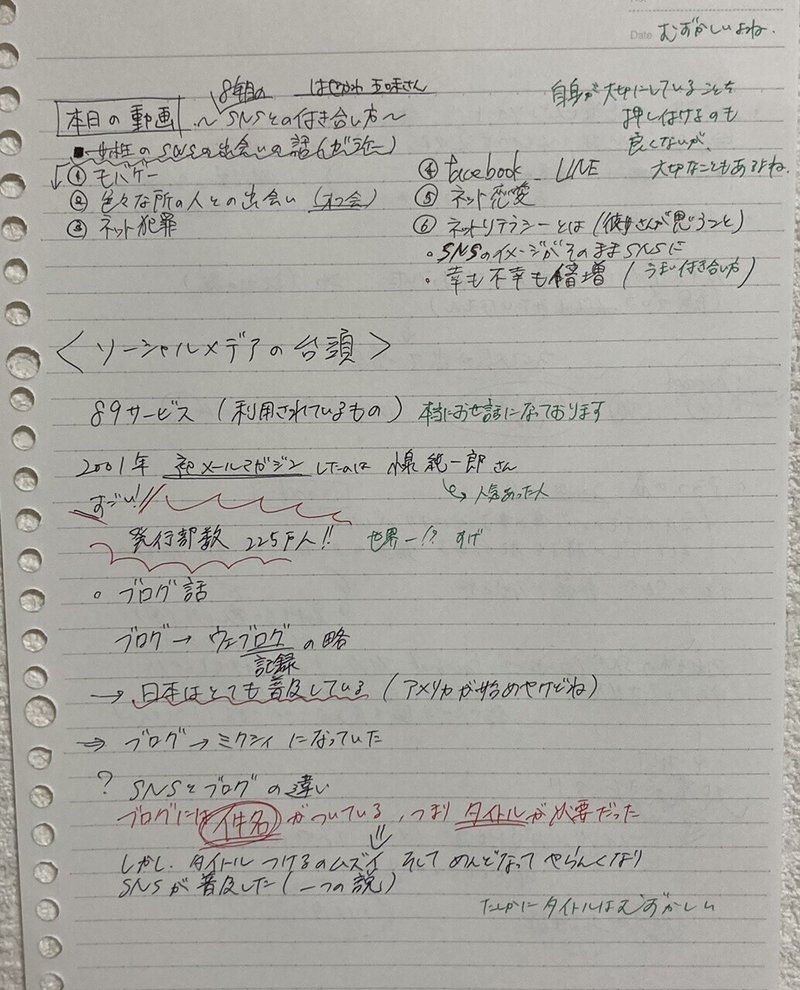 Date むずかしいよね.
8年目の はせがわ 玉味さん
本日の動画 〜SNSとの付き合い方〜
自身が大切にしていることを
押し付けるのも
良くないが、
大切なこともあるよね.
女性のSNSの出会いの話
① モバゲー
② 色々な所の人との出会い (オフ会)
③ ネット犯罪
④ facebook LINE
⑤ ネット恋愛
⑥ ネットリテラシーとは (彼女さんが思うこと)
・SNSのイメージがそのままSNSに
・幸も不幸も倍増 (うまい付き合い方)
<ソーシャルメデアの台頭>
89サービス (利用されているもの) 本当にお世話になっております
2001年 初メールマガジン したのは 小泉純一郎さん
すごい!! → 人気あった人
発行部数 225万人!! 世界一!? すげ
○ ブログ話
ブログ→ウェブログの略
記録
→ 日本はとても普及している (アメリカが始めやけどね)
⇒ ブログ→ミクシィになっていた
? SNSとブログの違い
ブログには件名がついている、つまりタイトルが必要だった
⇓
しかし、タイトルつけるのムズイ そして めんどなって やらんくなり
SNSが普及した (一つの説)
たしかにタイトルはむずかしい